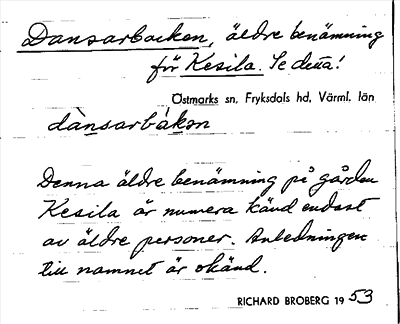 Dansarbacken, äldre benämning
för Kesila. Se detta!
Östmarks sn, Fryksdals hd, Värml. län
dànsarbàkən
Denna äldre benämning på gården
Kesila är numera känd endast
av äldre personer. Anledningen
till namnet är okänd.
RICHARD BROBERG 1953